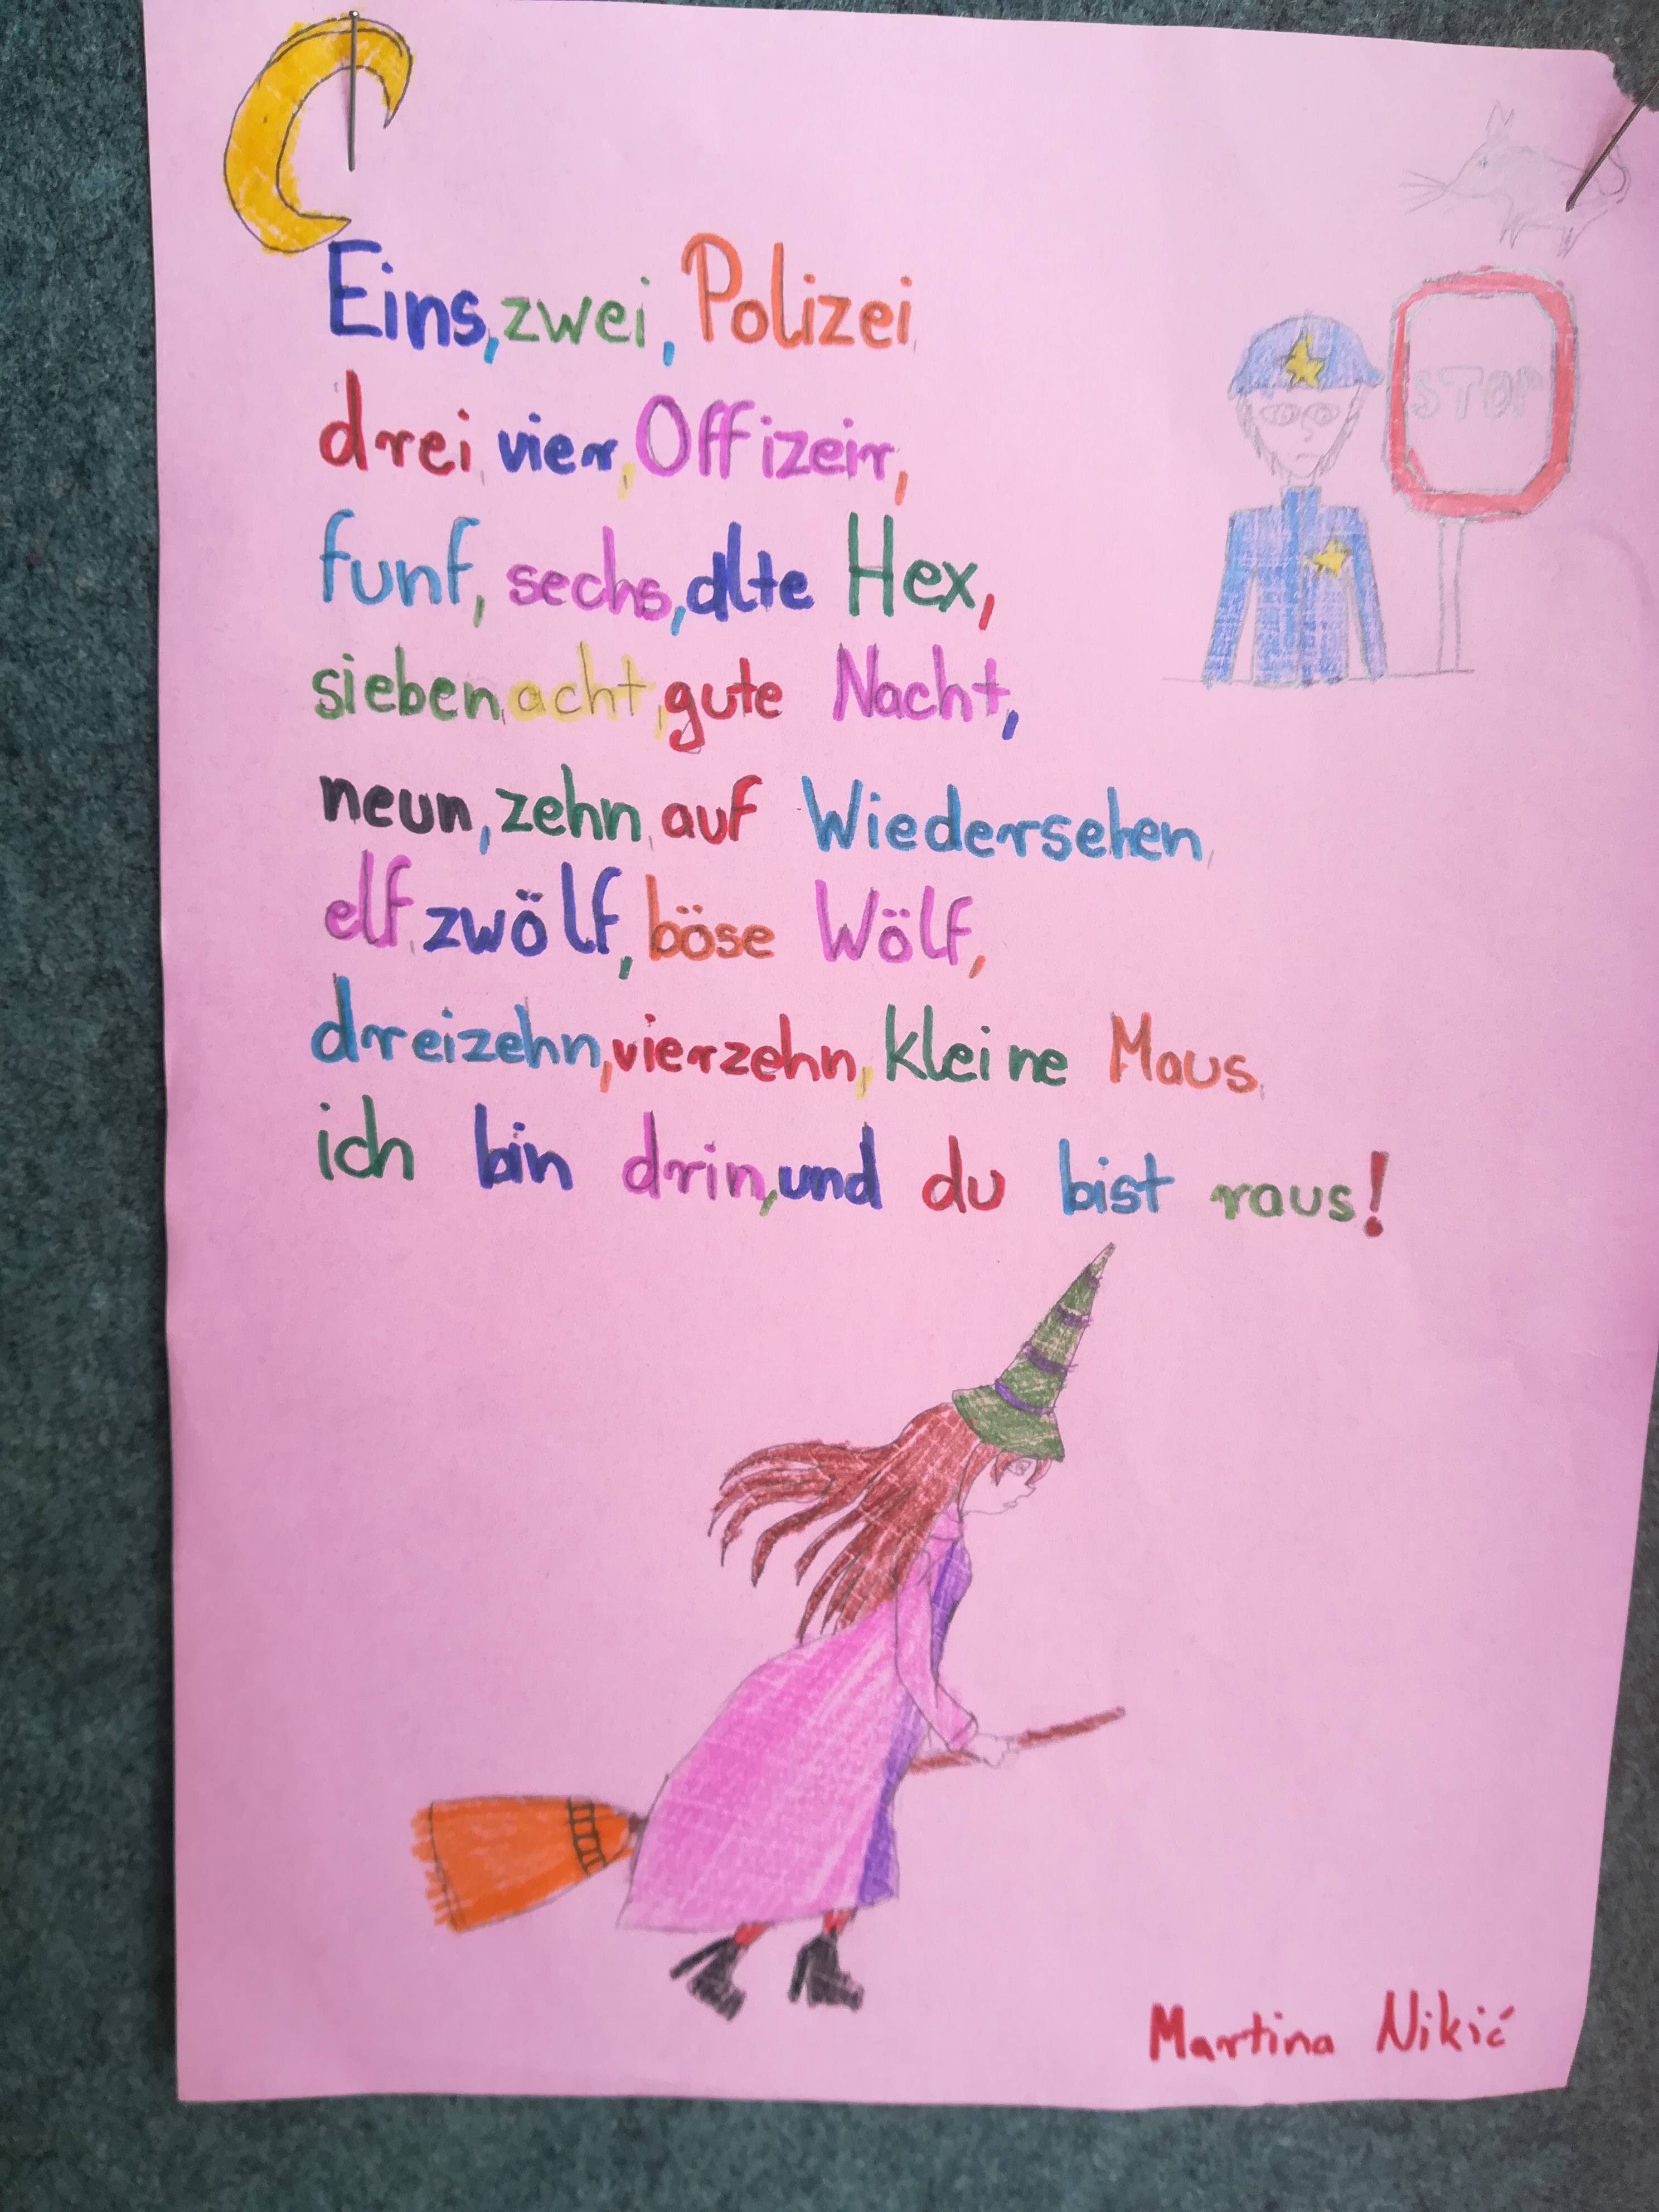 Eins, zwei, Polizei,
STOP
drei, vier, Offizeir,
funf, sechs, alte Hex,
sieben, acht, gute Nacht,
neun, zehn, auf Wiedersehen,
elf, zwölf, böse Wölf,
dreizehn, vierzehn, kleine Maus,
ich bin drin, und du bist raus!
Martina Nikić